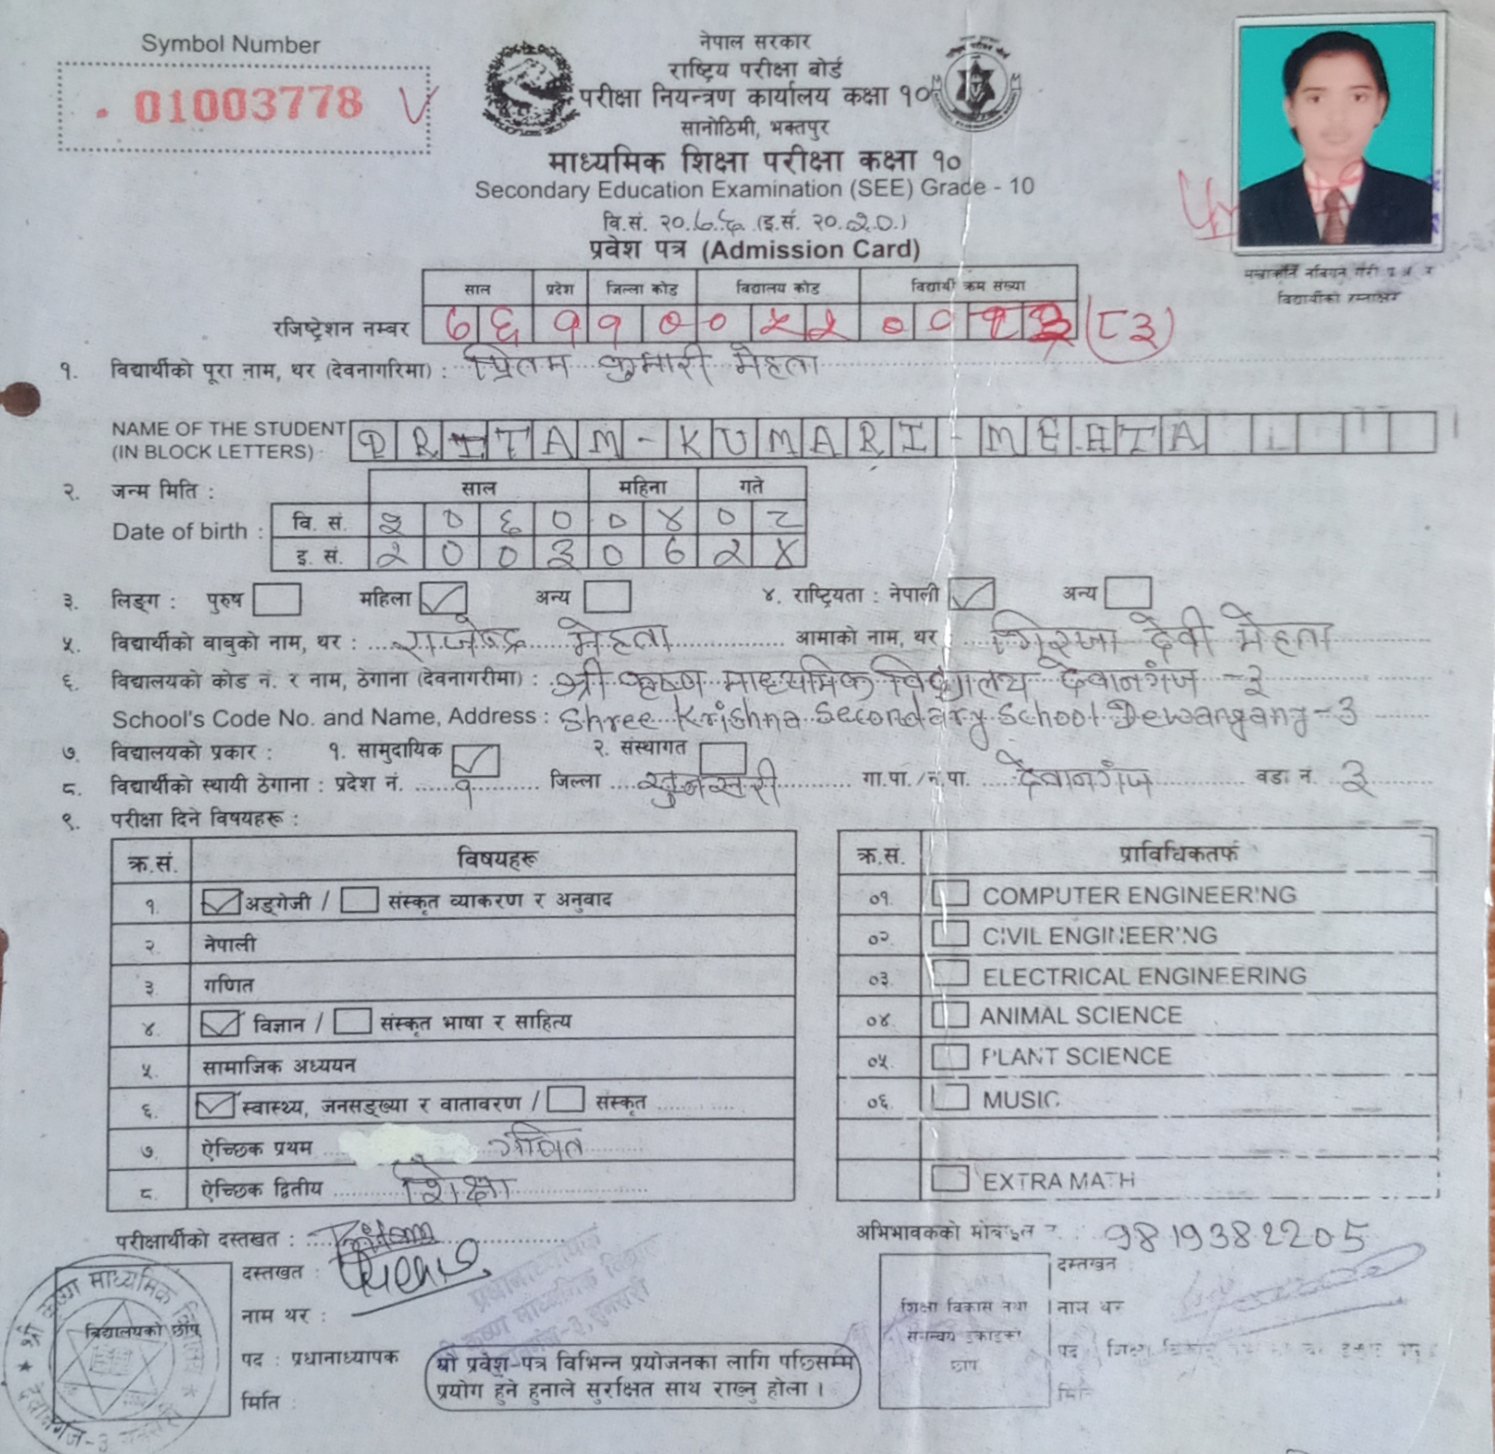 Symbol Number
01003778
नेपाल सरकार
राष्ट्रिय परीक्षा बोर्ड
परीक्षा नियन्त्रण कार्यालय कक्षा १०
सानोठिमी, भक्तपुर
माध्यमिक शिक्षा परीक्षा कक्षा १०
Secondary Education Examination (SEE) Grade - 10
वि.सं. २०७६ (इ.सं. २०२०)
प्रवेश पत्र (Admission Card)
साल प्रदेश जिल्ला कोड विद्यालय कोड विद्यार्थी क्रम संख्या
रजिष्ट्रेशन नम्बर ७ ६ १ १ ० ० ५ २ ० ० (८३)
विद्यार्थीको दस्तखत
१. विद्यार्थीको पूरा नाम, थर (देवनागरिमा) : प्रितम कुमारी मेहता
NAME OF THE STUDENT PRITAM-KUMARI-MEHTA
(IN BLOCK LETTERS)
२. जन्म मिति : साल महिना गते
Date of birth : वि. सं. २ ० ६ ० ० ४ ० ८
इ. सं. २ 0 0 3 0 6 २ ४
३. लिङ्ग : पुरुष महिला ✓ अन्य ४. राष्ट्रियता : नेपाली ✓ अन्य
५. विद्यार्थीको बाबुको नाम, थर : राजेन्द्र मेहता आमाको नाम, थर गिरजा देवी मेहता
६. विद्यालयको कोड नं. र नाम, ठेगाना (देवनागरीमा) : श्री कृष्ण माध्यमिक विद्यालय देवानगंज -३
School's Code No. and Name, Address : Shree Krishna Secondary School Dewangang-3
७. विद्यालयको प्रकार : १. सामुदायिक ✓ २. संस्थागत
८. विद्यार्थीको स्थायी ठेगाना : प्रदेश नं. १ जिल्ला सुनसरी गा.पा./न.पा. देवानगंज वडा नं. ३
९. परीक्षा दिने विषयहरू :
क्र.सं. विषयहरू
१. ✓ अङ्ग्रेजी / संस्कृत व्याकरण र अनुवाद
२. नेपाली
३ गणित
४. ✓ विज्ञान / संस्कृत भाषा र साहित्य
५. सामाजिक अध्ययन
६. ✓ स्वास्थ्य, जनसङ्ख्या र वातावरण / संस्कृत
७. ऐच्छिक प्रथम गणित
८. ऐच्छिक द्वितीय शिक्षा
क्र.स. प्राविधिकतर्फ
०१. COMPUTER ENGINEERING
०२. CIVIL ENGINEERING
०३. ELECTRICAL ENGINEERING
०४. ANIMAL SCIENCE
०५. PLANT SCIENCE
०६. MUSIC
EXTRA MATH
परीक्षार्थीको दस्तखत : Pritam
अभिभावकको मोबाइल न : 9819382205
दस्तखत :
नाम थर :
पद : प्रधानाध्यापक
मिति :
विद्यालयको छाप
श्री कृष्ण माध्यमिक
शिक्षा विकास तथा
समन्वय इकाइको
छाप
दस्तखत
नाम थर
पद
मिति
यो प्रवेश-पत्र विभिन्न प्रयोजनका लागि पछिसम्म
प्रयोग हुने हुनाले सुरक्षित साथ राख्नु होला ।